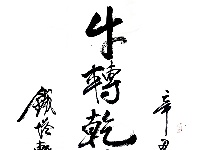 辛丑
牛轉乾
鐵塔